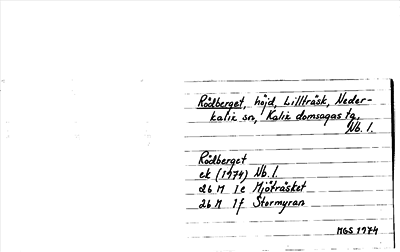 Rödberget, höjd, Lillträsk, Neder-
kalix sn, Kalix domsagas tg,
Nb. l.
Rödberget
ek (1974) Nb. l.
26 M 1e Mjöträsket
26 M 1f Stormyran
MGS 1974